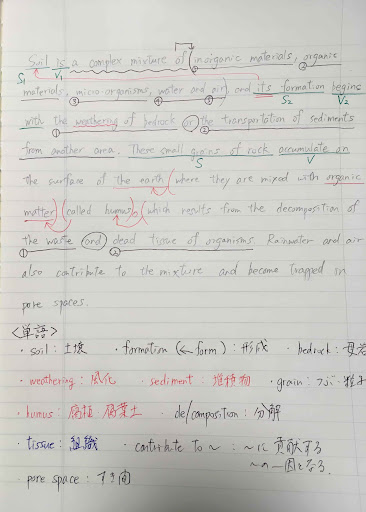 Soil is a complex mixture of (insiganic materials, organic
S₁ V₁ ① ②
materials, micro-organisms, water and air), and its formation begins
③ ④ ⑤ S₂ V₂
with the weathering of bedrock or the transportation of sediments
① ②
from another area. There small grains of rock accumulate on
S V
the surface of the earth (where they are mixed with organic
matter) (called humus), (which results from the decomposition of
the waste and dead tissue of organisms. Rainwater and air
① ②
also contribute to the mixture and become trapped in
pore spaces.
<単語>
・soil : 土壌 ・formation (← form) : 形成 ・bedrock : 母岩
・weathering : 風化 ・sediment : 堆積物 ・grain : つぶ・粒子
・humus : 腐植 腐葉土 ・de/composition : 分解
・tissue : 組織 ・contribute to ~ : ~に貢献する
~の一因となる.
・pore space : すき間